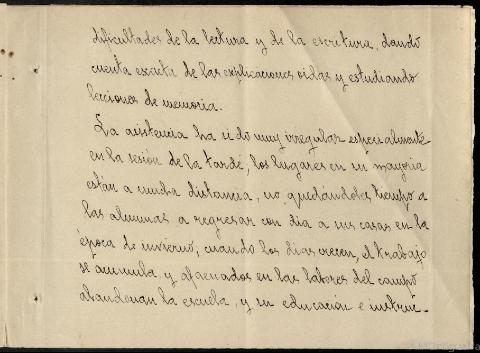 dificultades de la lectura y de la escritura, dando
cuenta exacta de las explicaciones oidas y estudiando
lecciones de memoria.
La asistencia ha sido muy irregular especialmente
en la sesión de la tarde, los lugares en su mayoria
están a mucha distancia, no quedándoles tiempo a
las alumnas a regresar con dia a sus casas en la
época de invierno; cuando los dias crecen, el trabajo
se acumula y afaenados en las labores del campo
abandonan la escuela, y su educación e instruc-